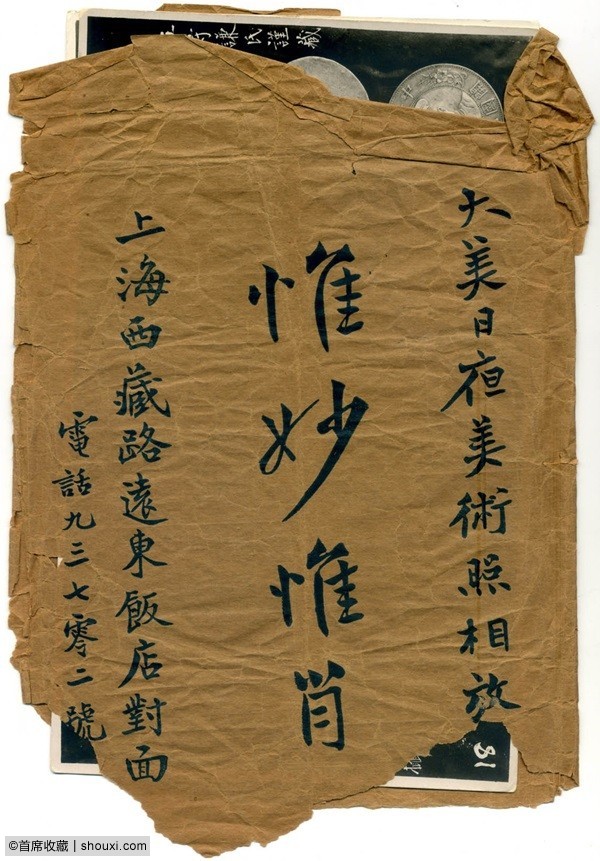 大美日夜美術照相放
惟妙惟肖
上海西藏路遠東飯店對面
電話九三七零二號
謝氏謹藏
中
國
81
©首席收藏 | shouxi.com